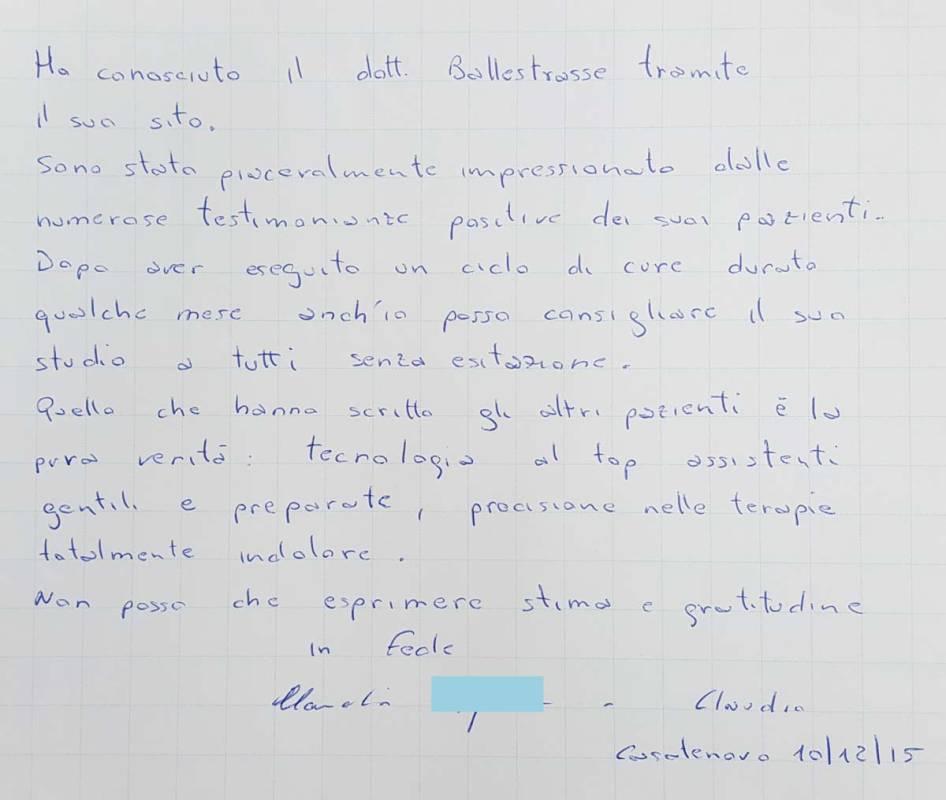 Ho conosciuto il dott. Ballestrasse tramite
il suo sito.
Sono stato piaceralmente impressionato dalle
numerose testimonianze positive dei suoi pazienti.
Dopo aver eseguito un ciclo di cure durato
qualche mese anch'io posso consigliare il suo
studio a tutti senza esitazione.
Quello che hanno scritto gli altri pazienti è la
pura verità: tecnologia al top assistenti
gentili e preparate, procisione nelle terapie
totalmente indolore.
Non posso che esprimere stima e gratitudine
in Fede
Claudio
Casatenovo 10/12/15